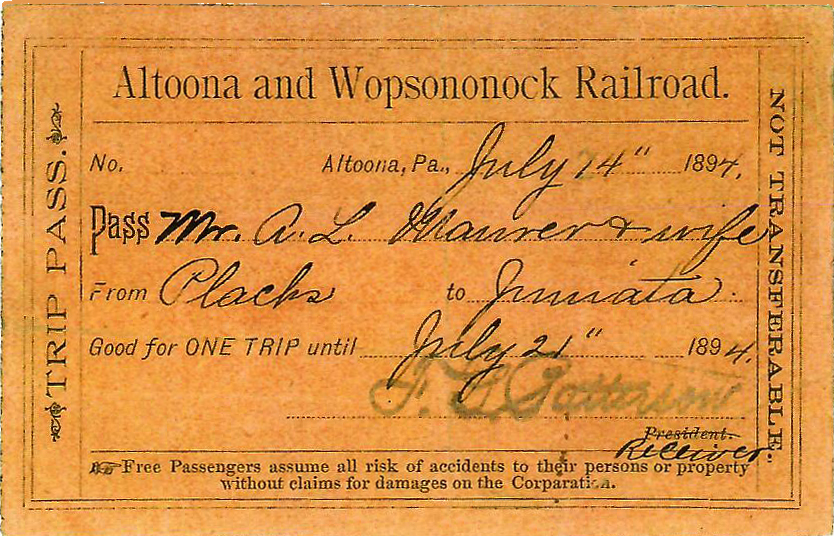 Altoona and Wopsononock Railroad.
TRIP PASS.
NOT TRANSFERABLE.
No. Altoona, Pa., July 14" 1894.
Pass Mr. A. L. Maurer & wife
From Placks to Juniata
Good for ONE TRIP until July 21" 1894.
F. G. Patterson
President.
Receiver.
Free Passengers assume all risk of accidents to their persons or property
without claims for damages on the Corparation.